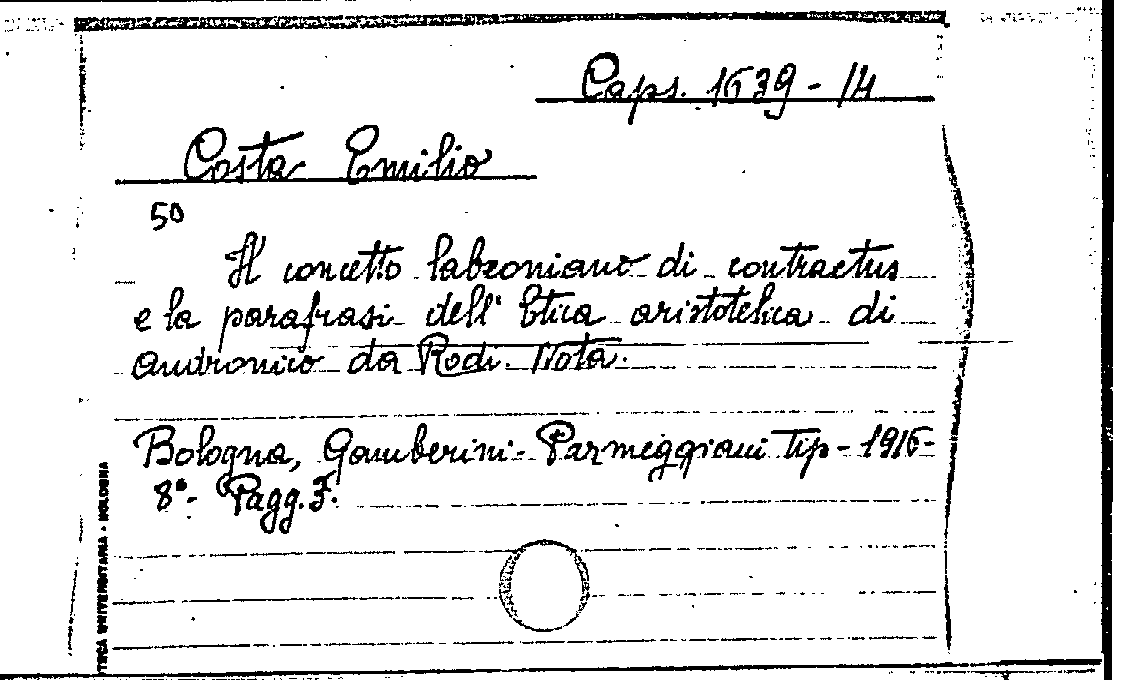 Caps. 1639 - 14
Costa Emilio
50
Il concetto labeoniano di contractus
e la parafrasi dell' Etica aristotelica di
Andronico da Rodi. Nota.
Bologna, Gamberini-Parmeggiani Tip - 1916 -
8°- Pagg. 7.
TECA UNIVERSITARIA - BOLOGNA